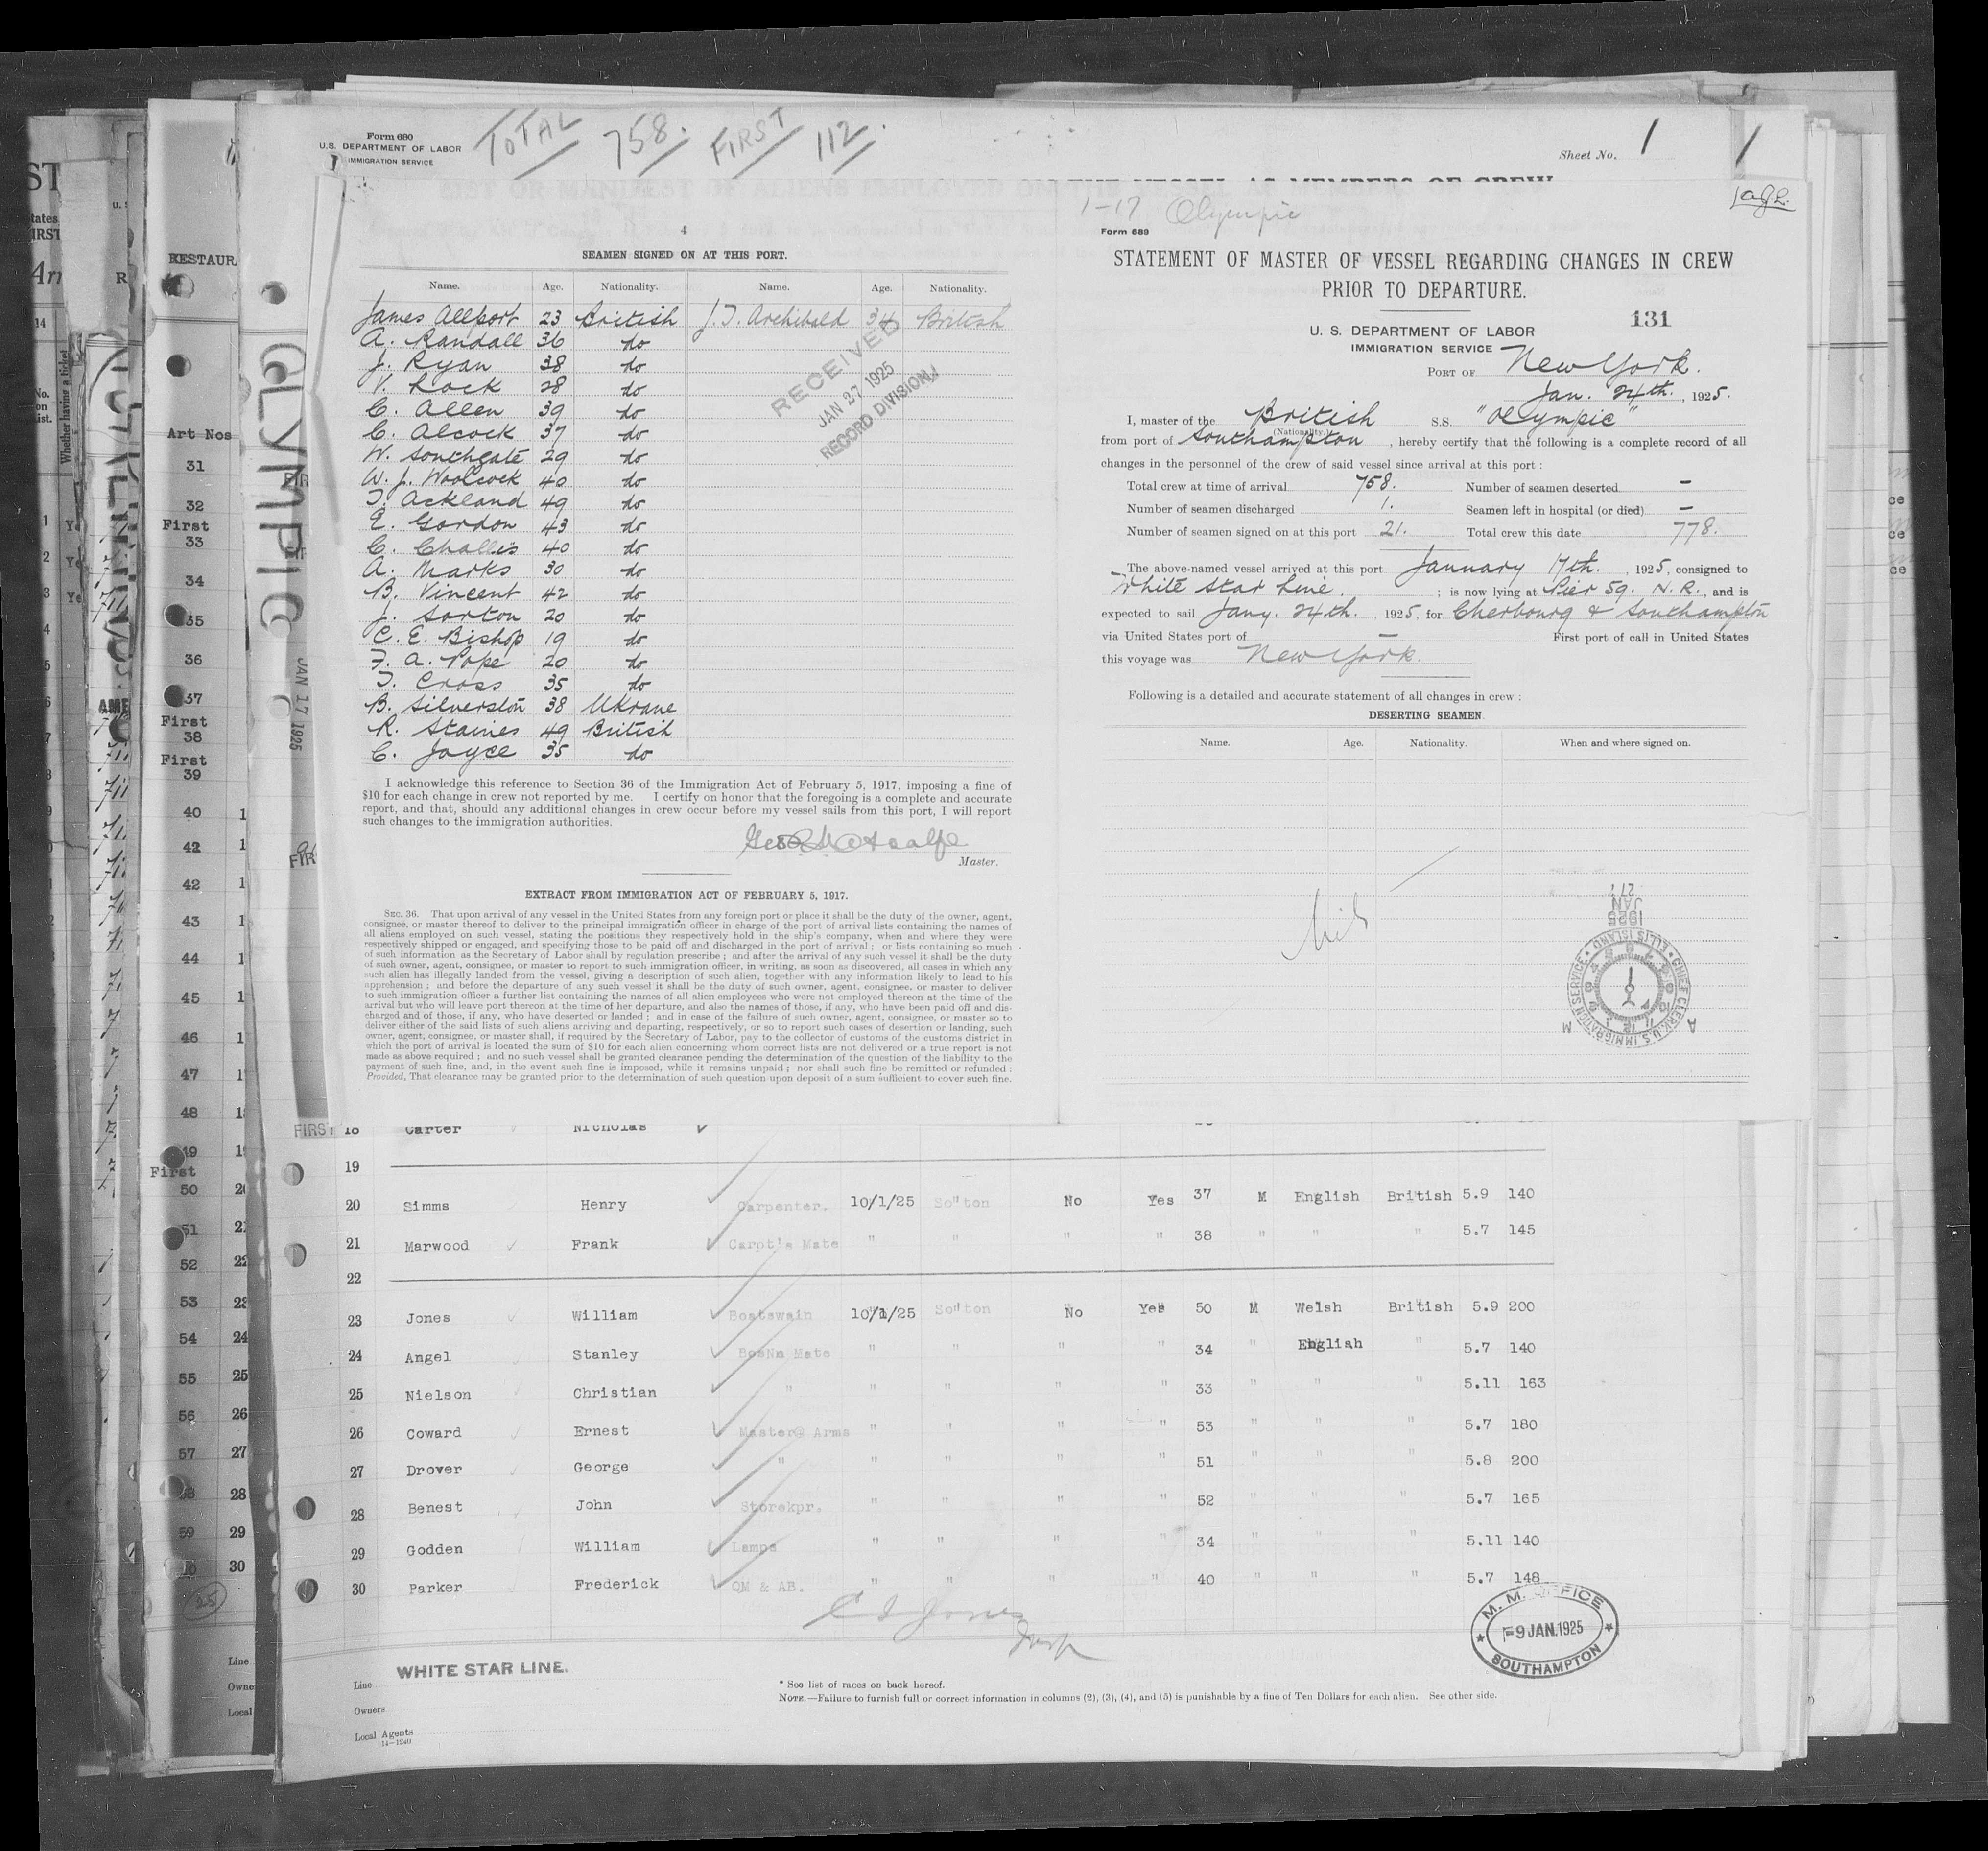 Form 680
U.S. DEPARTMENT OF LABOR
IMMIGRATION SERVICE
TOTAL 758. FIRST 112.
Sheet No. 1
1
4
SEAMEN SIGNED ON AT THIS PORT.
Name. Age. Nationality. Name. Age. Nationality.
James Allport 23 British J. T. Archibald 34 British
A. Randall 36 do
J. Ryan 38 do
V. Rock 28 do
C. Allen 39 do
C. Alcock 37 do
W. Southgate 29 do
W. J. Woolcock 40 do
T. Ackland 49 do
E. Gordon 43 do
C. Challis 40 do
A. Marks 30 do
B. Vincent 42 do
J. Sorton 20 do
C. E. Bishop 19 do
F. A. Pope 20 do
T. Cross 35 do
B. Silverston 38 Ukrane
R. Staines 49 British
C. Joyce 35 do
RECEIVED
JAN 27 1925
RECORD DIVISION
I acknowledge this reference to Section 36 of the Immigration Act of February 5, 1917, imposing a fine of
$10 for each change in crew not reported by me. I certify on honor that the foregoing is a complete and accurate
report, and that, should any additional changes in crew occur before my vessel sails from this port, I will report
such changes to the immigration authorities.
Metcalfe
Master.
EXTRACT FROM IMMIGRATION ACT OF FEBRUARY 5, 1917.
SEC. 36. That upon arrival of any vessel in the United States from any foreign port or place it shall be the duty of the owner, agent,
consignee, or master thereof to deliver to the principal immigration officer in charge of the port of arrival lists containing the names of
all aliens employed on such vessel, stating the positions they respectively hold in the ship's company, when and where they were
respectively shipped or engaged, and specifying those to be paid off and discharged in the port of arrival; or lists containing so much
of such information as the Secretary of Labor shall by regulation prescribe; and after the arrival of any such vessel it shall be the duty
of such owner, agent, consignee, or master to report to such immigration officer, in writing, as soon as discovered, all cases in which any
such alien has illegally landed from the vessel, giving a description of such alien, together with any information likely to lead to his
apprehension; and before the departure of any such vessel it shall be the duty of such owner, agent, consignee, or master to deliver
to such immigration officer a further list containing the names of all alien employees who were not employed thereon at the time of the
arrival but who will leave port thereon at the time of her departure, and also the names of those, if any, who have been paid off and dis-
charged and of those, if any, who have deserted or landed; and in case of the failure of such owner, agent, consignee, or master so to
deliver either of the said lists of such aliens arriving and departing, respectively, or so to report such cases of desertion or landing, such
owner, agent, consignee, or master shall, if required by the Secretary of Labor, pay to the collector of customs of the customs district in
which the port of arrival is located the sum of $10 for each alien concerning whom correct lists are not delivered or a true report is not
made as above required; and no such vessel shall be granted clearance pending the determination of the question of the liability to the
payment of such fine, and, in the event such fine is imposed, while it remains unpaid; nor shall such fine be remitted or refunded:
Provided, That clearance may be granted prior to the determination of such question upon deposit of a sum sufficient to cover such fine.
1-17 Olympic
Form 689
STATEMENT OF MASTER OF VESSEL REGARDING CHANGES IN CREW
PRIOR TO DEPARTURE.
131
U. S. DEPARTMENT OF LABOR
IMMIGRATION SERVICE
PORT OF New York.
Jan. 24th. , 1925.
I, master of the British S.S. "Olympic"
(Nationality.)
from port of Southampton , hereby certify that the following is a complete record of all
changes in the personnel of the crew of said vessel since arrival at this port:
Total crew at time of arrival 758. Number of seamen deserted -
Number of seamen discharged 1. Seamen left in hospital (or died) -
Number of seamen signed on at this port 21. Total crew this date 778.
The above-named vessel arrived at this port January 17th. , 1925, consigned to
White Star Line. ; is now lying at Pier 59. N.R., and is
expected to sail Jany. 24th. , 1925, for Cherbourg & Southampton
via United States port of - First port of call in United States
this voyage was New York.
Following is a detailed and accurate statement of all changes in crew:
DESERTING SEAMEN.
Name. Age. Nationality. When and where signed on.
Nil
JAN 27 1925
CHIEF CLERK, U.S. IMMIGRATION SERVICE • ELLIS ISLAND •
A M
OLYMPIC
JAN 17 1925
FIRST 18 Carter Nicholas
19
20 Simms Henry Carpenter. 10/1/25 So"ton No Yes 37 M English British 5.9 140
21 Marwood Frank Carpt's Mate " " " " 38 " " " 5.7 145
22
23 Jones William Boatswain 10/1/25 So"ton No Yes 50 M Welsh British 5.9 200
24 Angel Stanley BosNn Mate " " " " 34 " English " 5.7 140
25 Nielson Christian " " " " " 33 " " " 5.11 163
26 Coward Ernest Master@ Arms " " " " 53 " " " 5.7 180
27 Drover George " " " " " 51 " " " 5.8 200
28 Benest John Storekpr. " " " " 52 " " " 5.7 165
29 Godden William Lamps " " " " 34 " " " 5.11 140
30 Parker Frederick QM & AB. " " " " 40 " " " 5.7 148
Jones
M. M. OFFICE
9 JAN.1925
SOUTHAMPTON
Line WHITE STAR LINE.
Owners
Local Agents
14-1240
* See list of races on back hereof.
NOTE.—Failure to furnish full or correct information in columns (2), (3), (4), and (5) is punishable by a fine of Ten Dollars for each alien. See other side.
RESTAUR
Art Nos
31
32
First
33
34
35
36
37
First
38
First
39
40
42
42
43
44
45
46
47
48
49
First
50
51
52 22
53
54 24
55 25
56 26
57 27
28
59 29
30
25
Line
Owne
Local